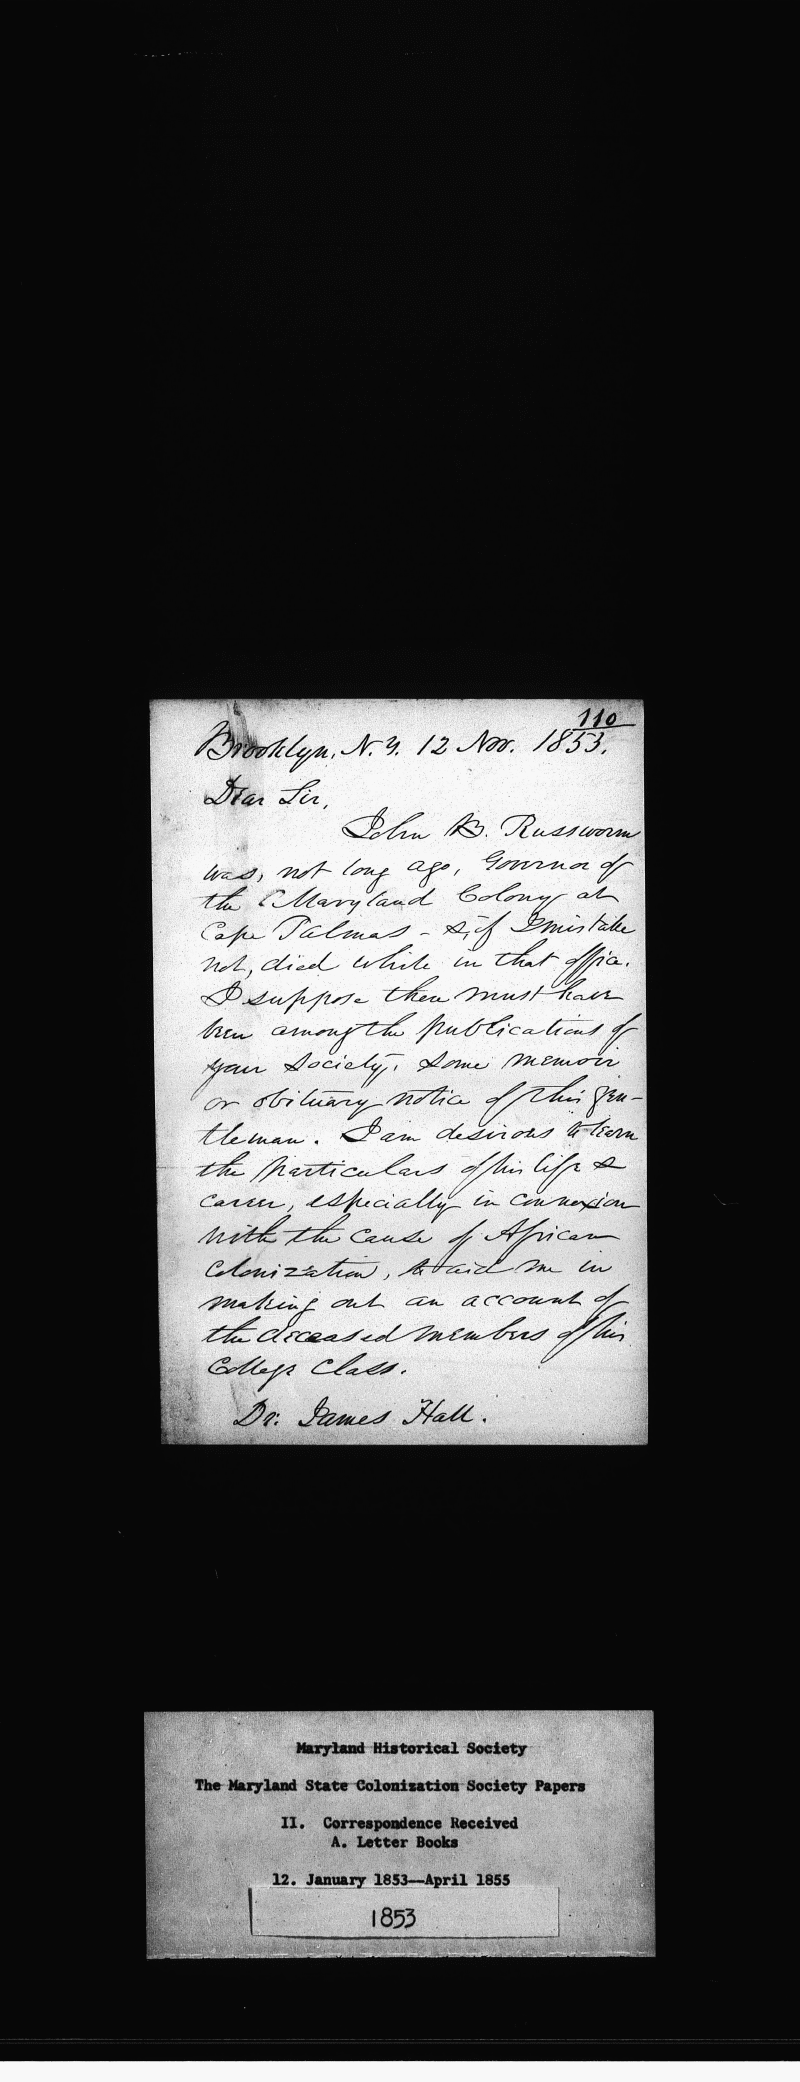 110
Brooklyn, N.Y. 12 Nov. 1853.
Dear Sir,
John B. Russworm
was, not long ago, Governor of
the Maryland Colony at
Cape Palmas - &, if I mistake
not, died while in that office.
I suppose there must have
been among the publications of
your Society, some memoir
or obituary notice of this gen-
tleman. I am desirous to learn
the particulars of his life &
career, especially in connexion
with the cause of African
Colonization, to aid me in
making out an account of
the deceased members of his
College Class.
Dr. James Hall.
Maryland Historical Society
The Maryland State Colonization Society Papers
II. Correspondence Received
A. Letter Books
12. January 1853--April 1855
1853